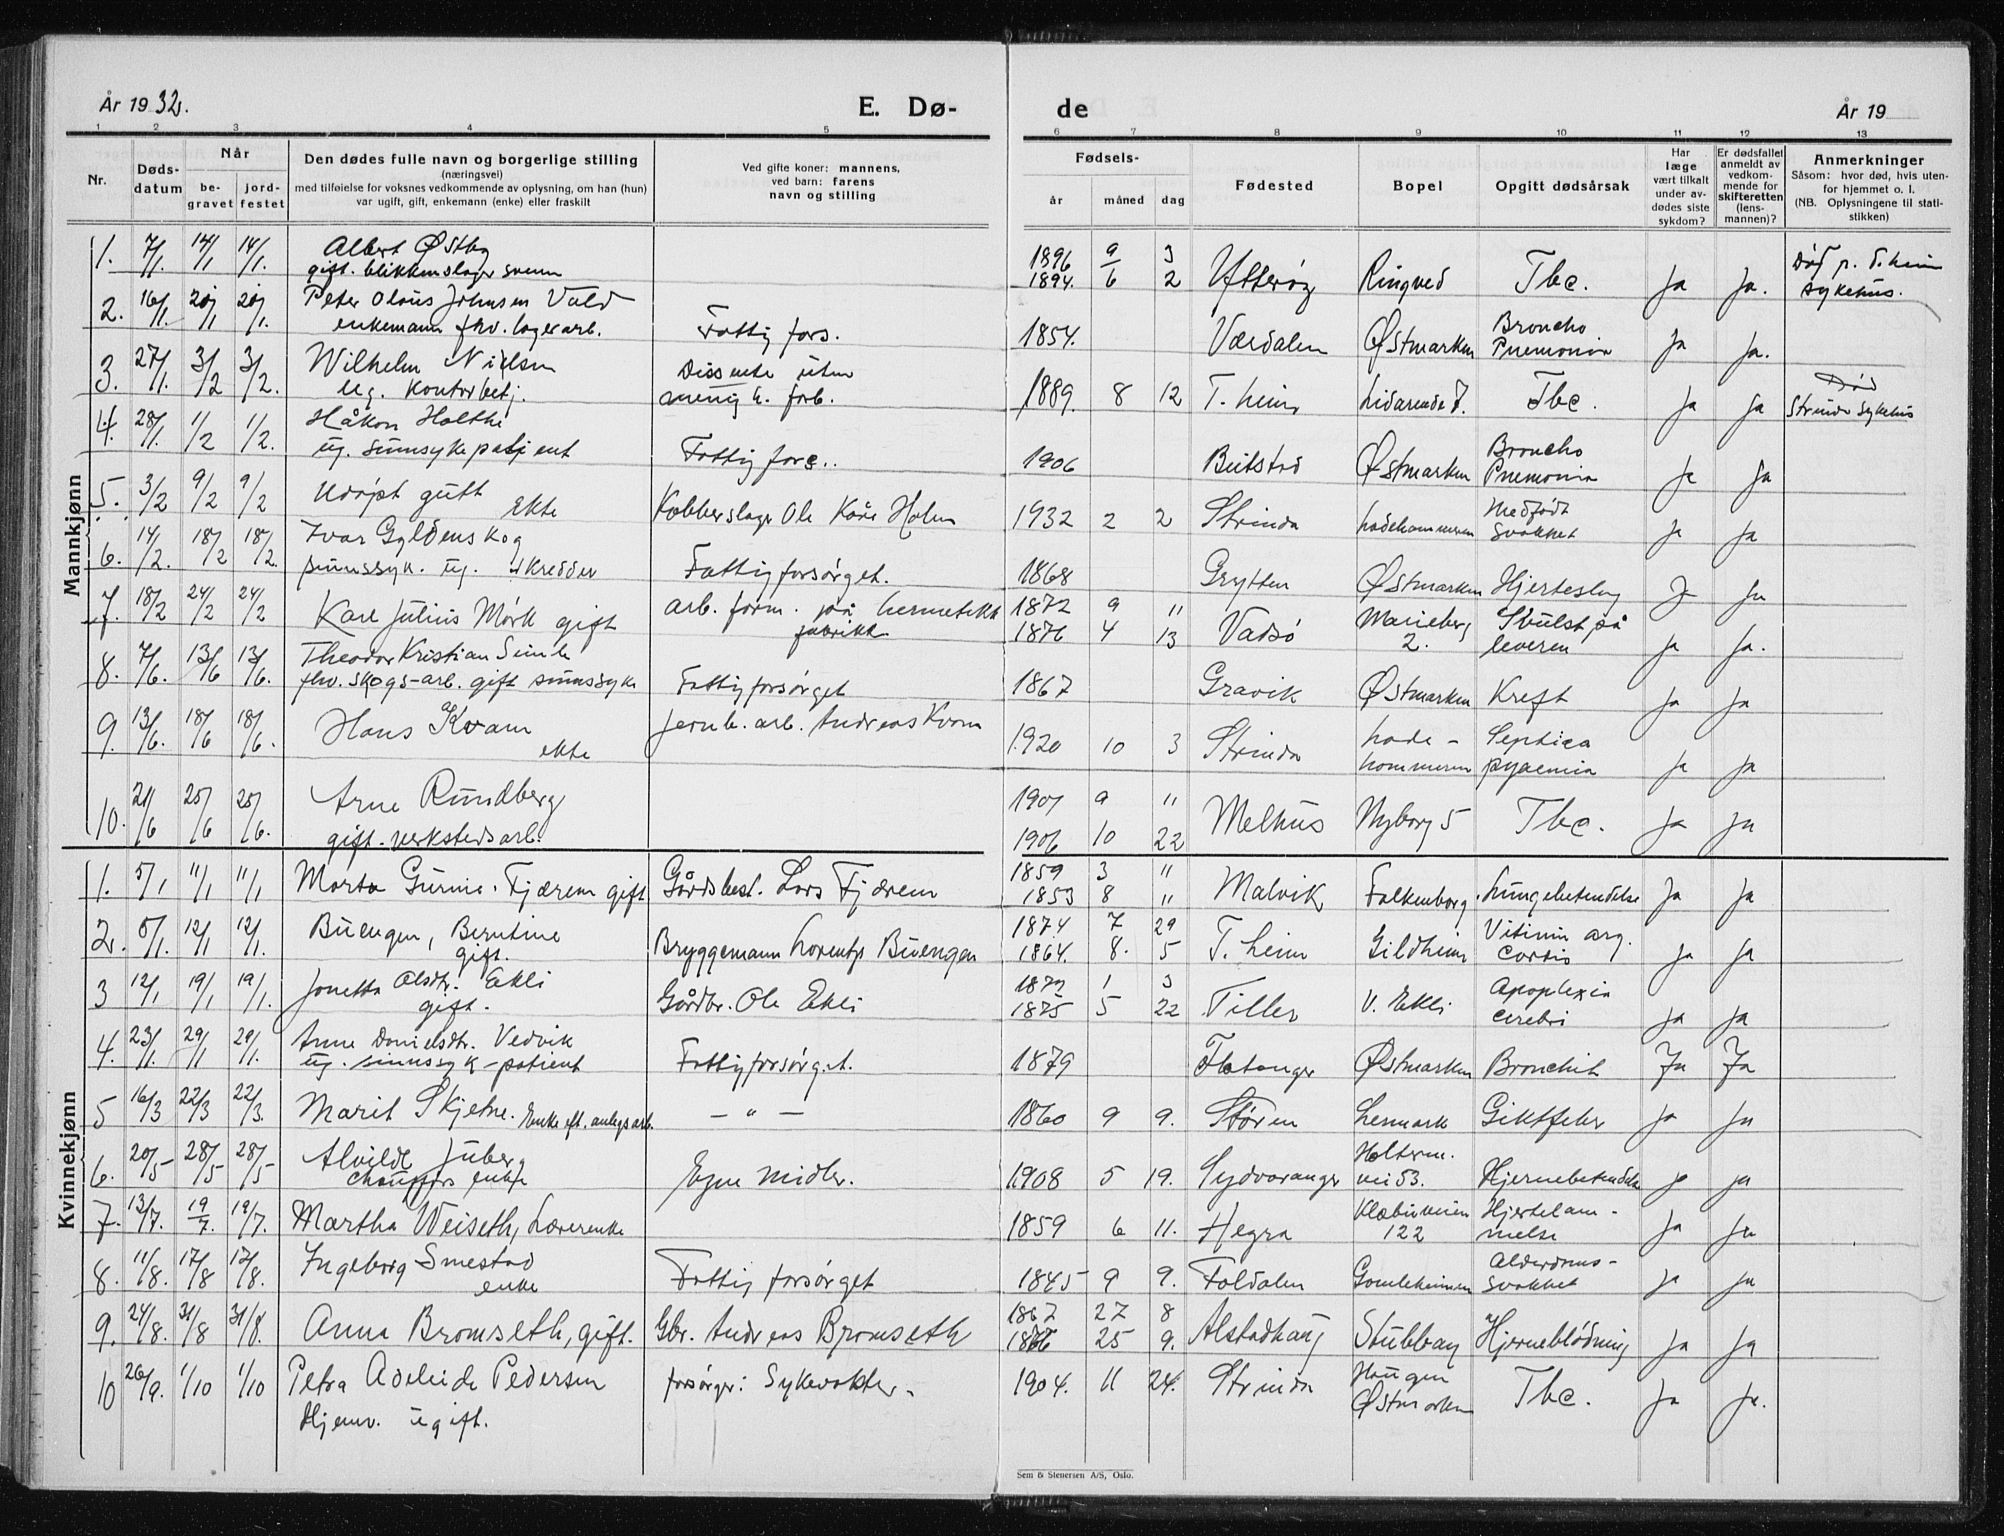 År 1932.
E. Dø-
de
År 19
1 2 3 4 5 6 7 8 9 10 11 12 13
Nr.
Døds-
datum
Når
be-
gravet
jord-
festet
Den dødes fulle navn og borgerlige stilling
(næringsvei)
med tilføielse for voksnes vedkommende av oplysning, om han (hun)
var ugift, gift, enkemann (enke) eller fraskilt
Ved gifte koner: mannens,
ved barn: farens
navn og stilling
Fødsels-
år måned dag
Fødested
Bopel
Opgitt dødsårsak
Har
læge
vært tilkalt
under av-
dødes siste
sykdom?
Er dødsfallet
anmeldt av
vedkom-
mende for
skifteretten
(lens-
mannen)?
Anmerkninger
Såsom: hvor død, hvis uten-
for hjemmet o. l.
(NB. Oplysningene til stati-
stikken)
Mannkjønn
1. 7/1. 14/1 14/1. Albert Østby
gift. blikkenslager svenn
1896 9 3
1894. 6 2 Ytterøy Ringved Tbc. Ja Ja. Død p. T.heim
sykehus.
2. 16/1. 20/1 20/1. Peter Olaus Johnsen Vald
enkemann fhv. lagerarb. Fattig fors.
1854. Værdalen Østmarken Broncho
Pnemonia Ja Ja.
3. 27/1. 3/2 3/2. Wilhelm Nielsen
ug. Kontorbetj. Dissente uten
menigh. forb.
1889. 8 12 T.heim Tbc. Ja Ja Død
Strinda Sykehus
4. 28/1. 1/2 1/2. Håkon Holthe
ug. sinnsykepatient Fattigfors.
1906 Beitstad Østmarken Broncho
Pnemonia Ja Ja
5. 3/2 9/2 9/2 Udøpt gutt
Ekte Kobberslager Ole Kåre Holm
1932 2 2 Strinda Ladehammeren Medfødt
Svakhet Ja Ja
6. 14/2. 18/2 18/2. Ivar Gyldenskog
sinnssyk. ug. skredder Fattigforsørget.
1868 Grytten Østmarken Hjerteslag Ja Ja
7. 18/2 24/2 24/2 Karl Julius Mørk gift arb. form. på hermetikk
fabrikk
1872 9 "
1876 4 13 Vadsø Marieberg
2. Svulst på
leveren Ja Ja.
8. 7/6. 13/6 13/6. Theodor Kristian
fhv. skogs-arb. gift sinnssyk Fattigforsørget
1867 Gravik Østmarken Kreft Ja Ja
9. 13/6. 18/6 18/6. Hans Kvam
ekte Jernb. arb. Andreas Kvam
1920 10 3 Strinda Lade-
hammeren Septica
pyaemia Ja Ja
10. 21/6 25/6 25/6. Arne Rundberg
gift. verkstedsarb.
1901 9 "
1906 10 22 Melhus Nyborg 5 Tbc. Ja Ja
Kvinnekjønn
1. 5/1 11/1 11/1 Marta Gurine Fjærem gift Gårdbest. Lars Fjærem
1859 3 "
1853 8 " Malvik Falkenborg. Lungebetendelse Ja Ja
2. 5/1. 12/1 12/1. Buengen, Berntine
gift. Bryggemann Lorentz Buengen
1874 7 29
1864. 8. 5 T.heim Gildheim Vitium org.
Cordis Ja Ja
3 12/1 19/1 19/1. Jonetta Olsdtr. Ekli
gift. Gårdbr. Ole Ekli
1872 1 3
1875 5 22 Tiller V. Ekli Apoplexia
cerebri Ja Ja
4. 23/1. 29/1 29/1. Anne Danielsdtr. Vedvik
ug. sinnssyk-patient Fattigforsørget.
1879 Flatanger Østmarken Bronchit Ja Ja
5 16/3 22/3 22/3. Marit Skjetne. Enke eft. anlegsarb. - " -
1860 9 9. Støren Lenmark Giktfeber Ja Ja
6. 20/5 28/5 28/5 Alvilde Juberg
Chaufførs enke Egne midler.
1908 5 19. Sydvaranger Holterm.
vei 53. Hjernebetendelse Ja Ja
7. 13/7. 19/7. 19/7. Martha Weiseth, Lærerenke
1859 6 11. Hegra Klæbuveien
122 Hjertelam-
melse Ja Ja
8. 11/8. 17/8 17/8. Ingeborg Smestad
enke Fattig forsørget
1845 9 9. Foldalen Gamleheimen Alderdoms-
Svakhet Ja Ja
9. 24/8. 31/8 31/8. Anna Bromseth, gift. Gbr. Andreas Bromseth
1867 27 8
1866 25 9. Alstadhaug Stubban Hjerneblødning Ja Ja
10 26/9. 1/10 1/10 Petra Adeleide Pedersen
Hjemv. ugift. forsørger: Sykevokter.
1904. 11 24. Strinda Haugen
Østmarken Tbc. Ja Ja.
Sem & Stenersen A/S, Oslo.